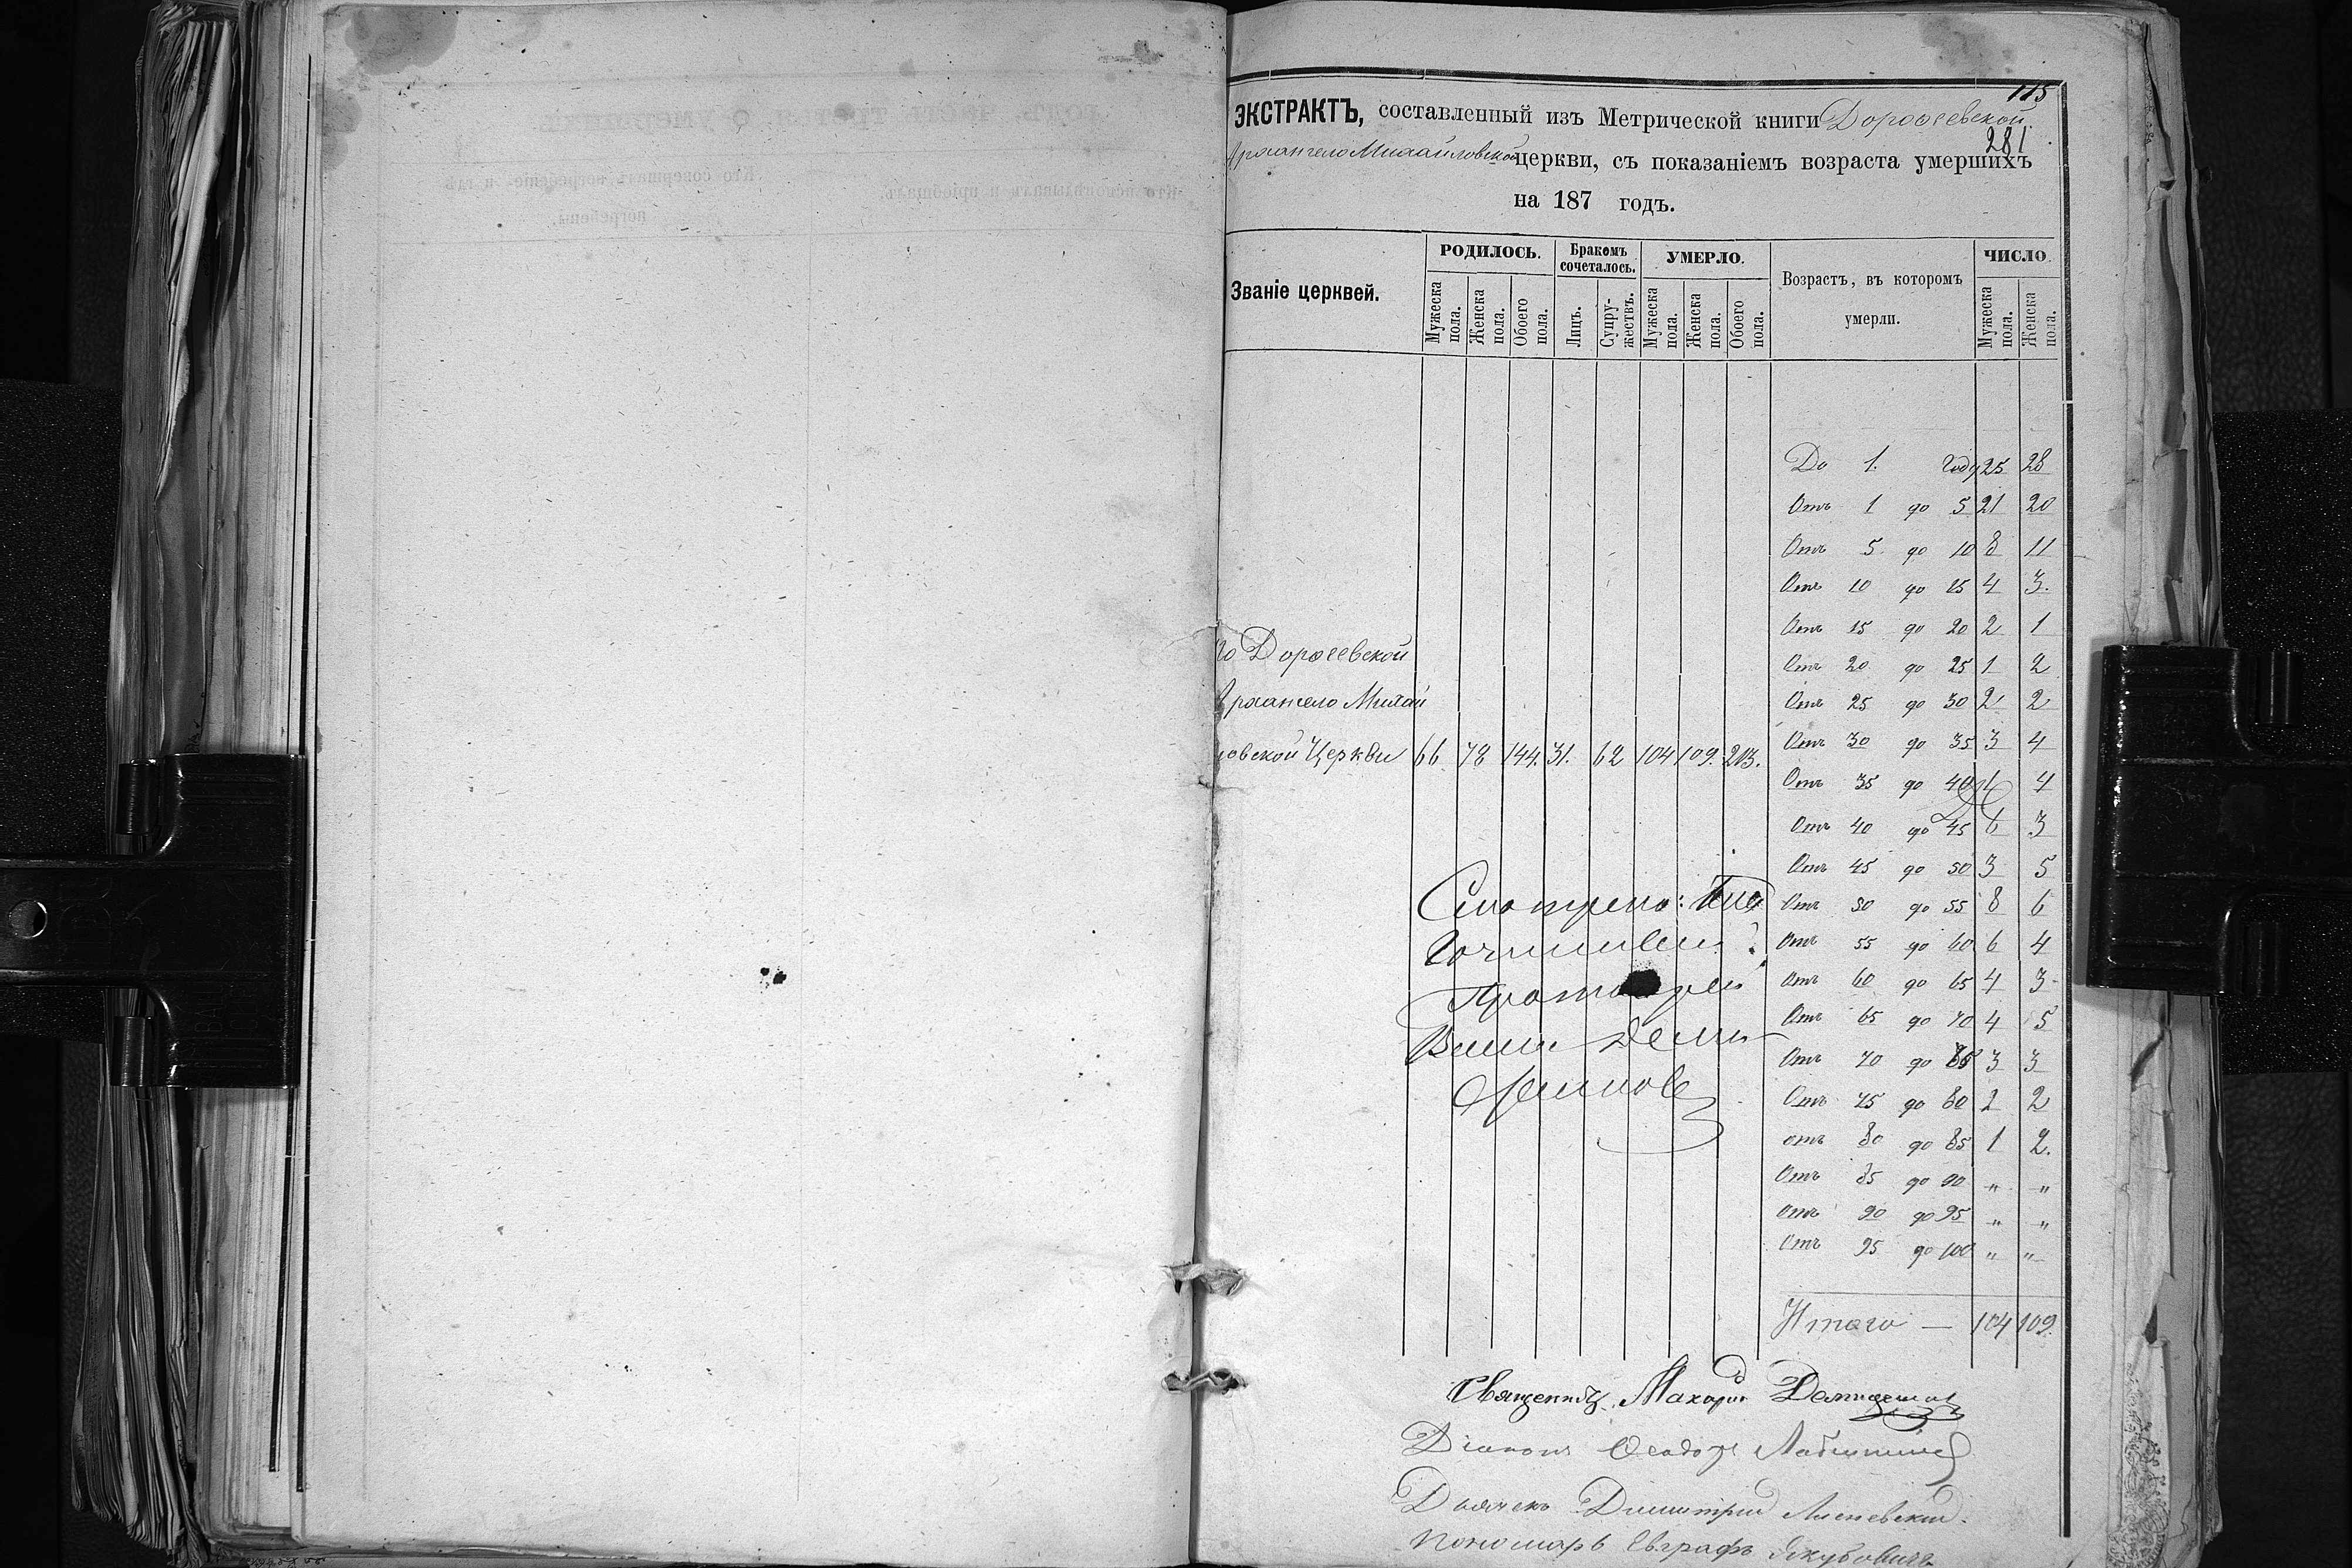 115
ЭКСТРАКТЪ, составленный изъ Метрической книги Дороѳеевской
281
Архангело Михайловской церкви, съ показаніемъ возраста умершихъ
на 187 годъ.
Званіе церквей.
РОДИЛОСЬ.
Бракомъ сочеталось.
УМЕРЛО.
Возрастъ, въ которомъ умерли.
ЧИСЛО
Мужеска пола.
Женска пола.
Обоего пола.
Лицъ.
Супружествъ.
Мужеска пола.
Женска пола.
Обоего пола.
Мужеска пола.
Женска пола.
До 1. году 25 28
Отъ 1 до 5 21 20
Отъ 5 до 10 8 11
Отъ 10 до 15 4 3.
Отъ 15 до 20 2 1
го Дороѳеевской
Отъ 20 до 25 1 2
Архангело Михай
Отъ 25 до 30 2 2
ловской Церкви 66 78 144. 31. 62 104 109. 213.
Отъ 30 до 35 3 4
Отъ 35 до 40 4
Отъ 40 до 45 6 3
Отъ 45 до 50 3 5
Смотрено:
Отъ 50 до 55 8 6
Отъ 55 до 60 6 4
Отъ 60 до 65 4 3
Отъ 65 до 70 4 5
Отъ 70 до 3 3
Отъ 75 до 80 2 2
отъ 80 до 85 1 2.
Отъ 85 до 90 " "
Отъ 90 до 95 " "
Отъ 95 до 100 " "
Итого — 104 109.
Священникъ Макарій
Діаконъ Ѳеодоръ
Дьячекъ Димитрій
Пономарь Евграфъ Якубовичъ